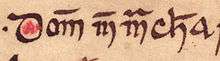 Dom̅ m̅ m̅cħa